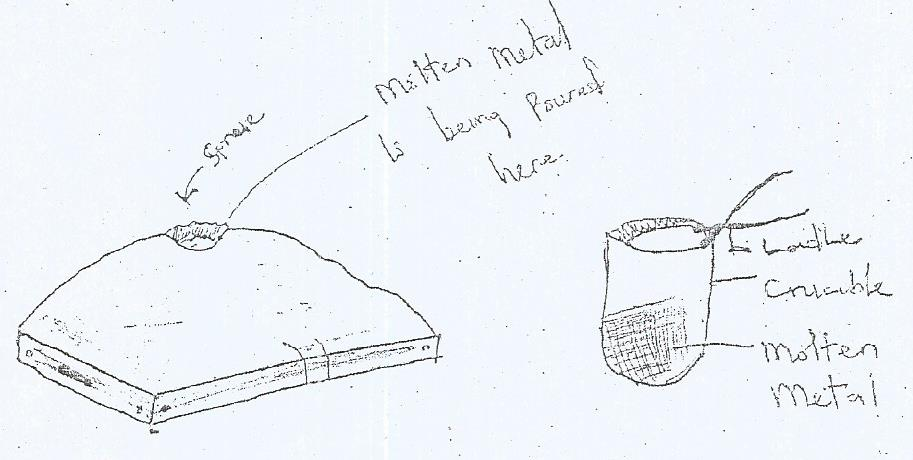 Molten Metal
is being Poured
here.
Crucible
Molten
Metal